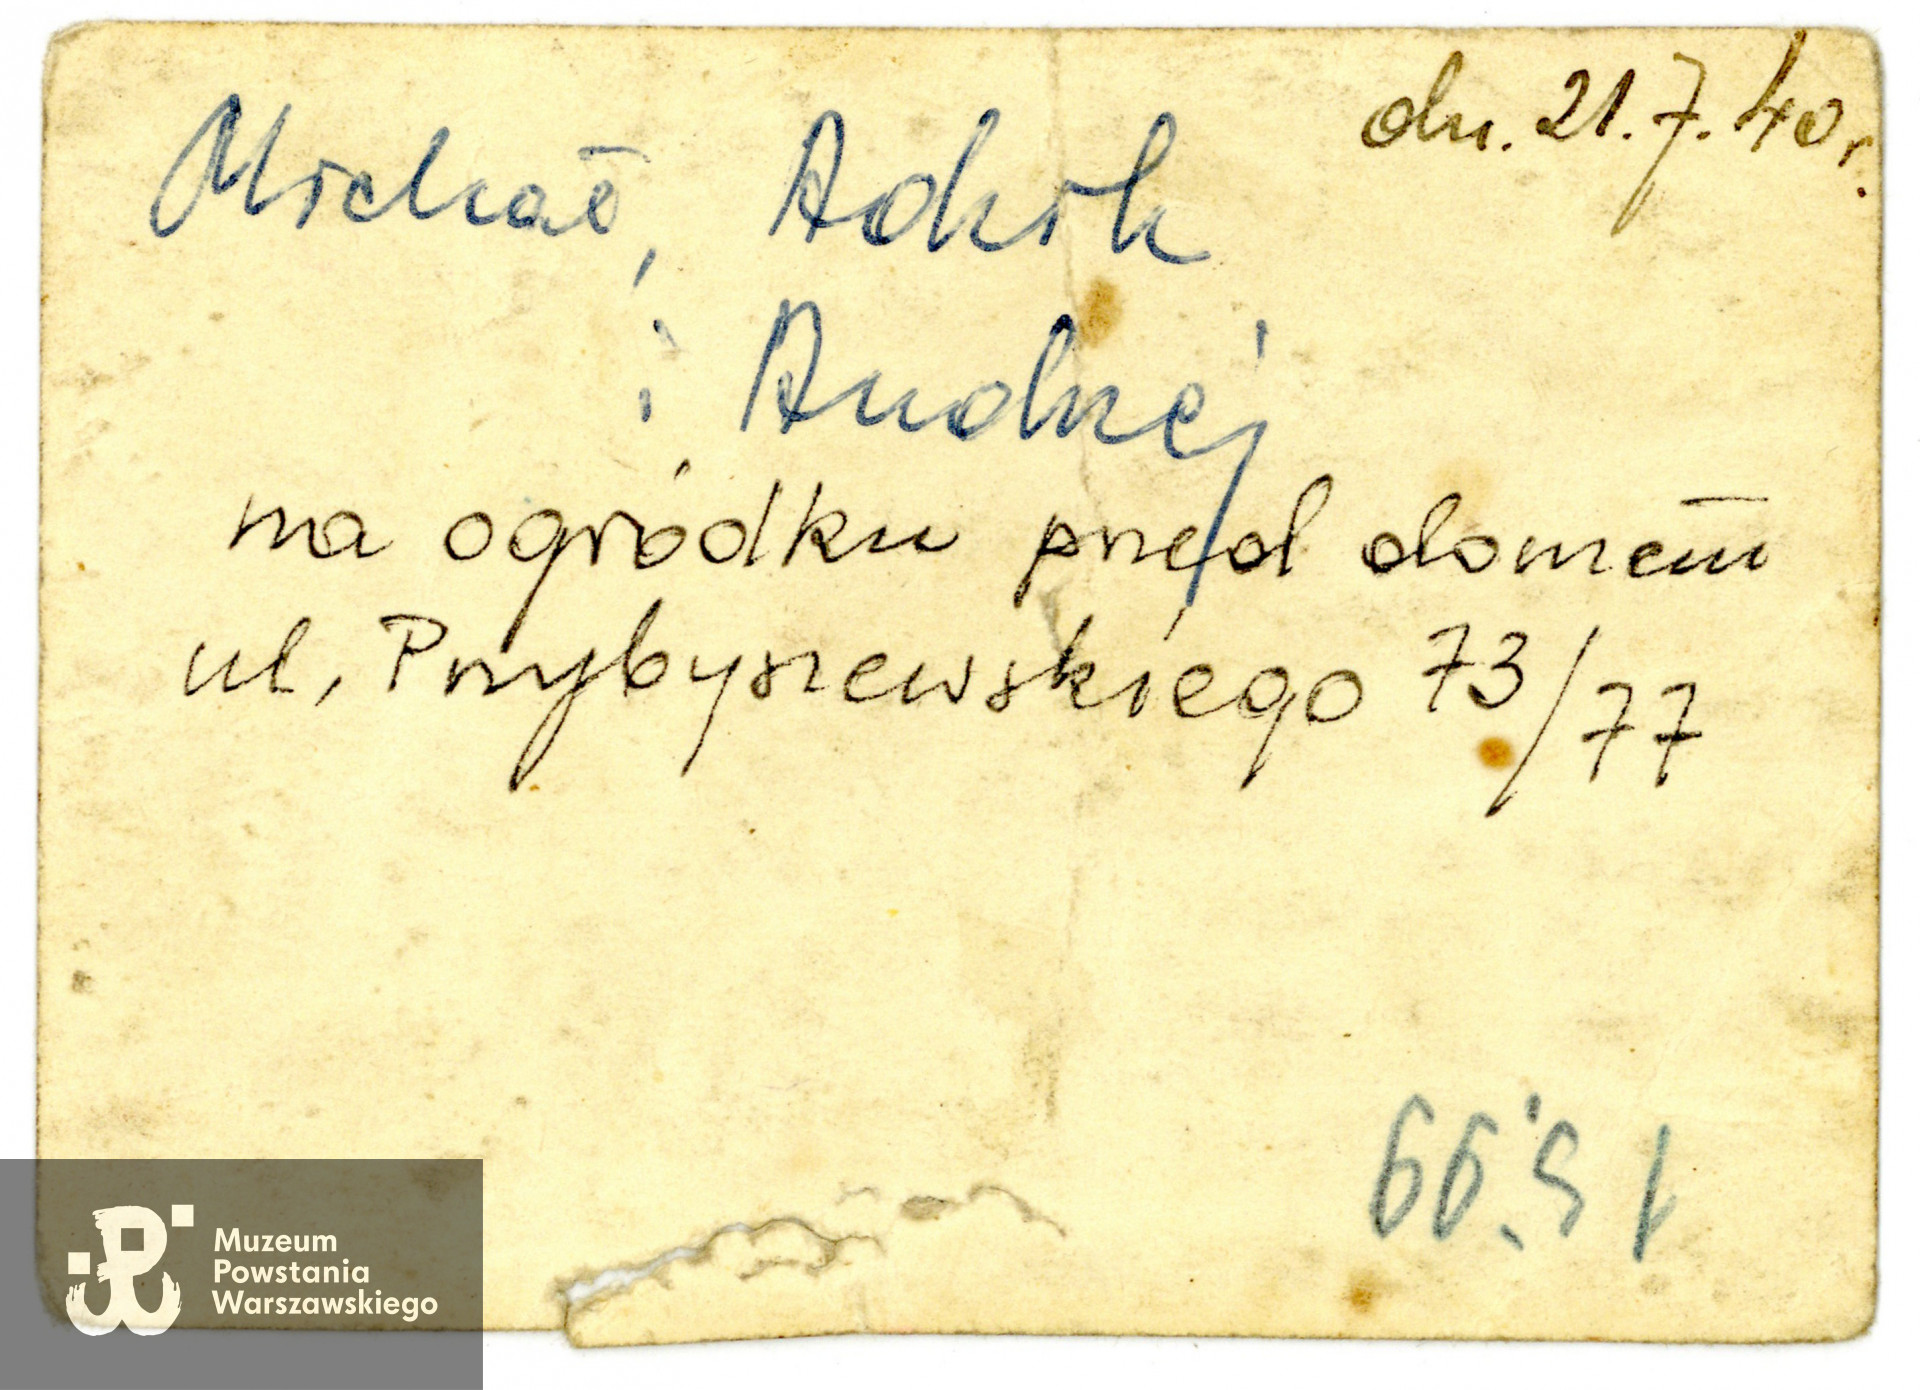 dn. 21.7.40 r.
Michał, Adzik
i Andrzej
na ogródku przed domem
ul. Przybyszewskiego 73/77
Muzeum
Powstania
Warszawskiego